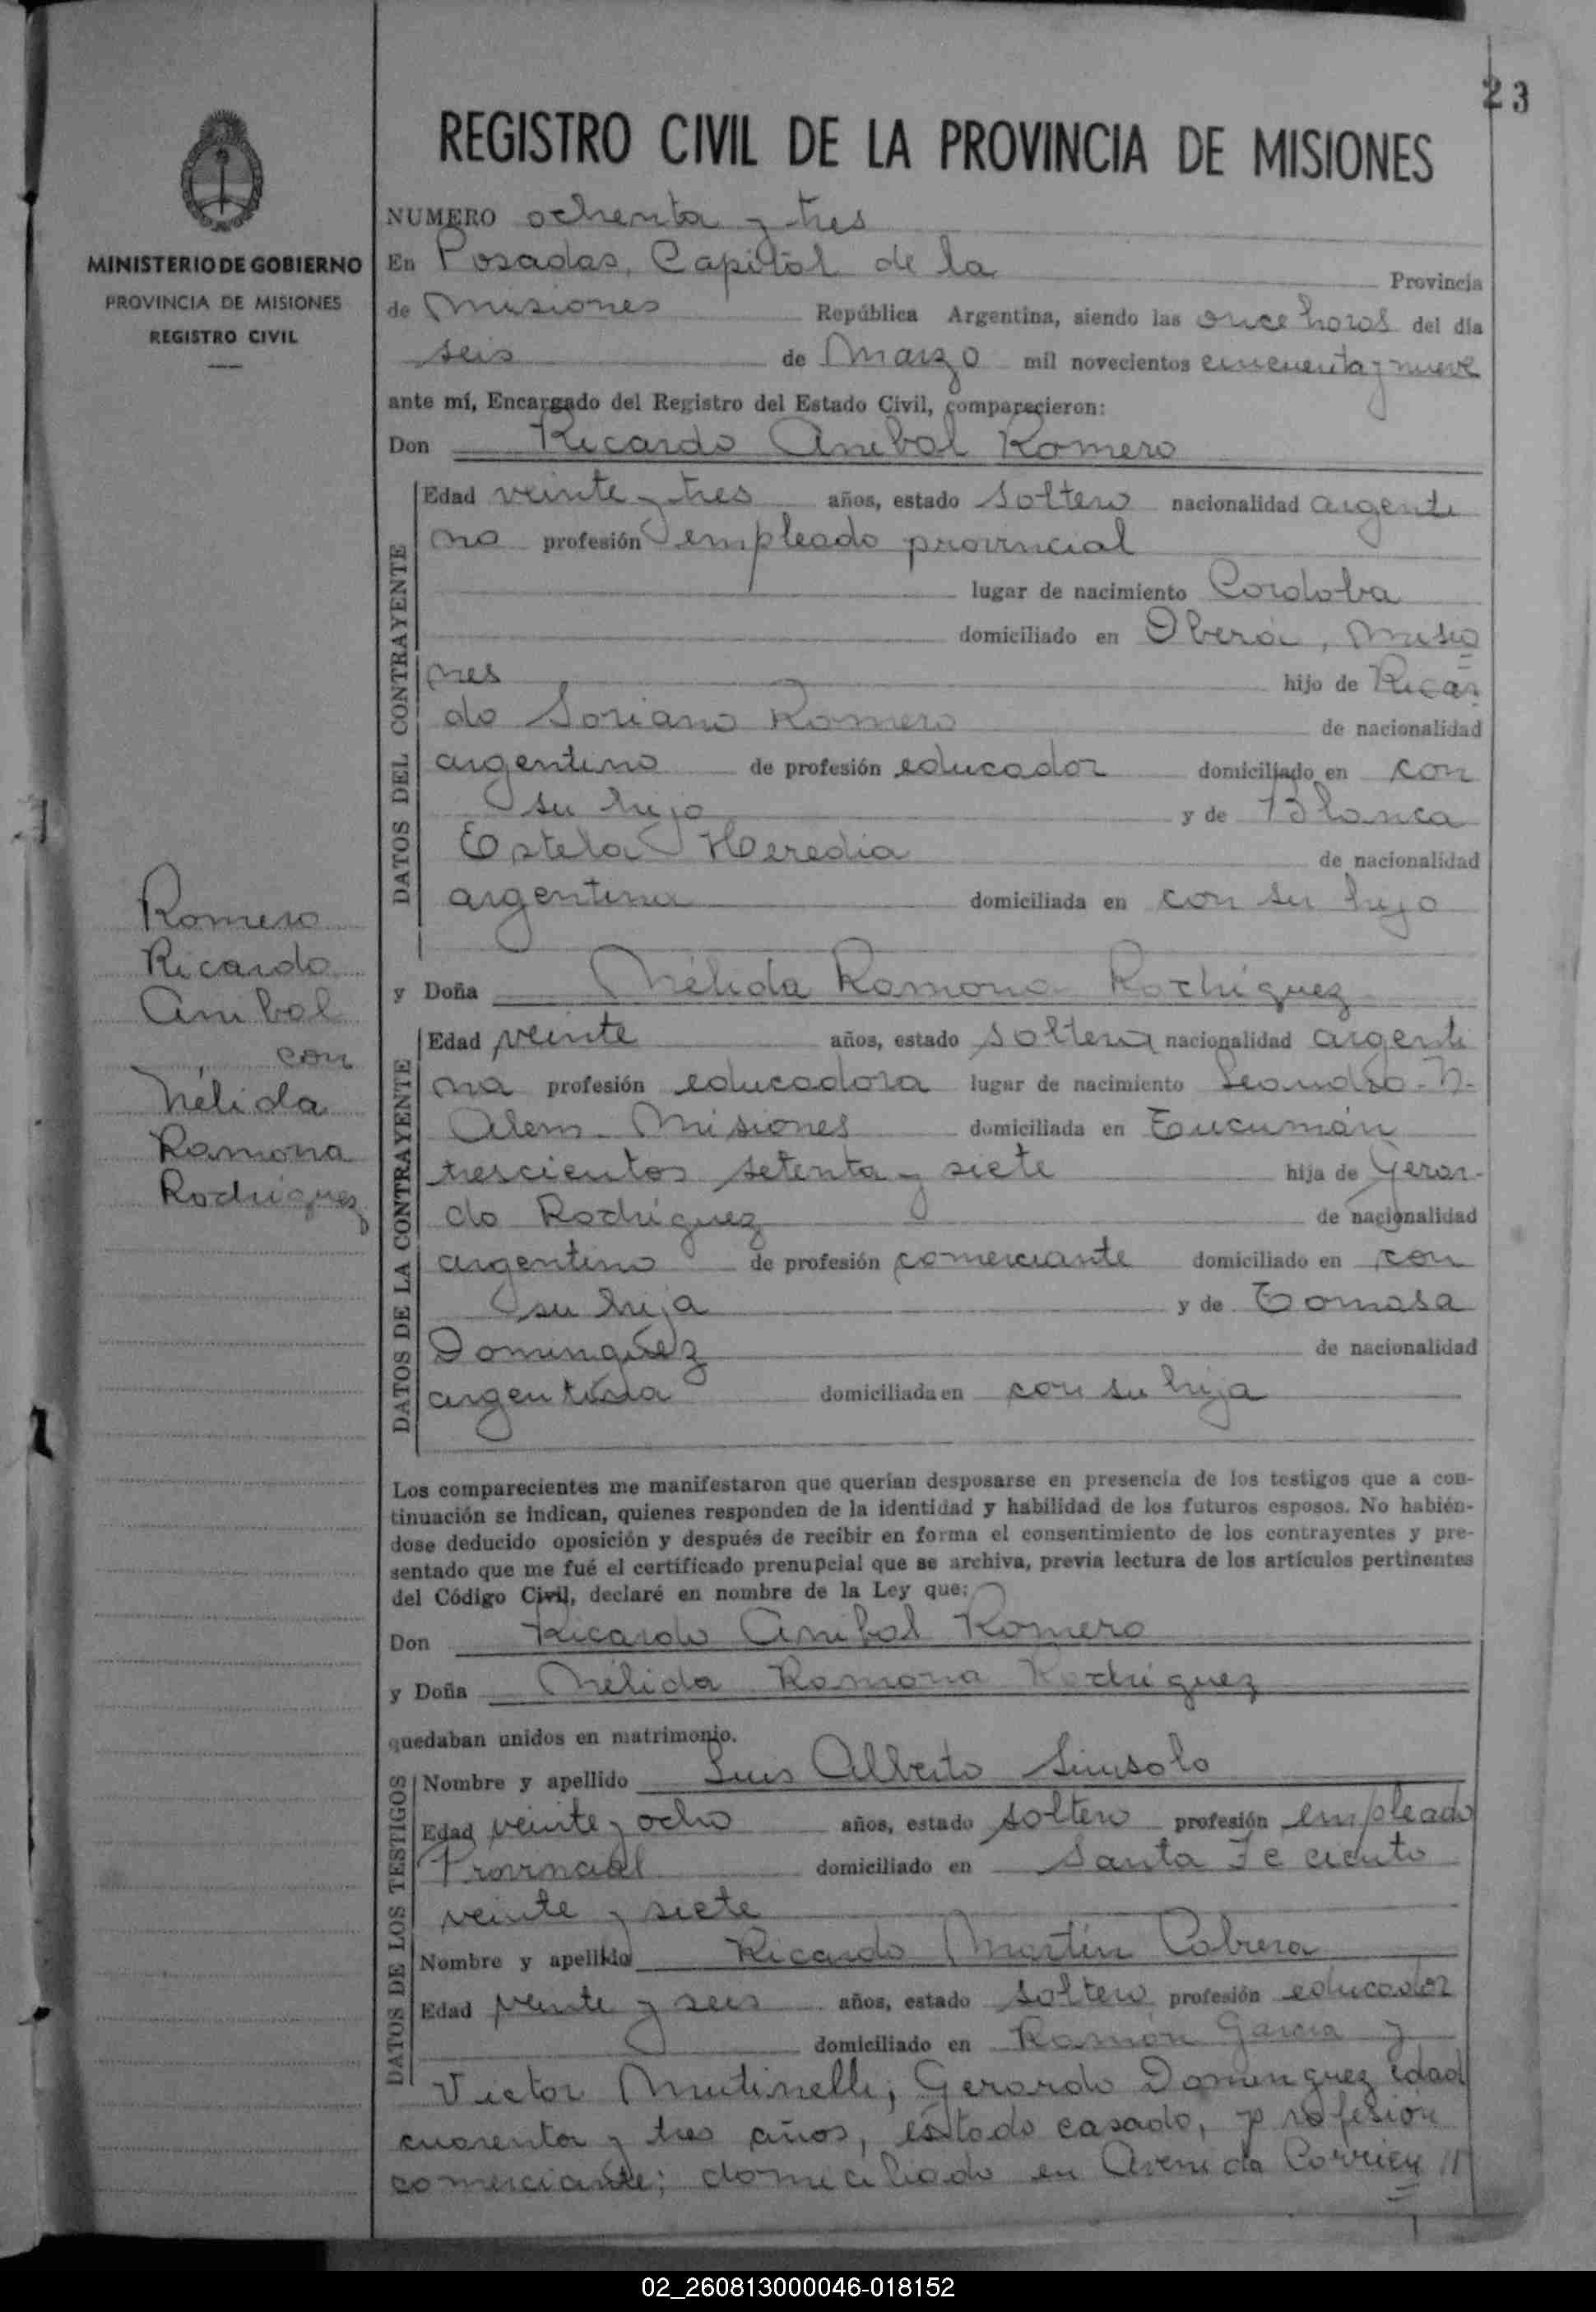 23
REGISTRO CIVIL DE LA PROVINCIA DE MISIONES
MINISTERIO DE GOBIERNO
PROVINCIA DE MISIONES
REGISTRO CIVIL
NUMERO ochenta y tres
En Posadas, Capital de la Provincia
de Misiones República Argentina, siendo las once horas del día
seis de Marzo mil novecientos cincuenta y nueve
ante mí, Encargado del Registro del Estado Civil, comparecieron:
Don Ricardo Anibal Romero
DATOS DEL CONTRAYENTE
Edad veinte y tres años, estado soltero nacionalidad argenti
no profesión empleado provincial
lugar de nacimiento Cordoba
domiciliado en Oberá, Misio
nes hijo de Ricar
do Soriano Romero de nacionalidad
argentino de profesión educador domiciliado en con
su hijo y de Blanca
Estela Heredia de nacionalidad
argentina domiciliada en con su hijo
Romero
Ricardo
Anibal
con
Nélida
Ramona
Rodriguez
y Doña Nélida Ramona Rodriguez
DATOS DE LA CONTRAYENTE
Edad veinte años, estado soltera nacionalidad argenti
na profesión educadora lugar de nacimiento Leandro. N.
Alem Misiones domiciliada en Tucumán
trescientos setenta y siete hija de Gerar-
do Rodriguez de nacionalidad
argentino de profesión comerciante domiciliado en con
su hija y de Tomasa
Dominguez de nacionalidad
argentina domiciliada en con su hija
Los comparecientes me manifestaron que querían desposarse en presencia de los testigos que a con-
tinuación se indican, quienes responden de la identidad y habilidad de los futuros esposos. No habién-
dose deducido oposición y después de recibir en forma el consentimiento de los contrayentes y pre-
sentado que me fué el certificado prenupcial que se archiva, previa lectura de los artículos pertinentes
del Código Civil, declaré en nombre de la Ley que:
Don Ricardo Anibal Romero
y Doña Nélida Ramona Rodriguez
quedaban unidos en matrimonio.
DATOS DE LOS TESTIGOS
Nombre y apellido Luis Alberto
Edad veinte y ocho años, estado soltero profesión empleado
Provincial domiciliado en Santa Fe ciento
veinte y siete
Nombre y apellido Ricardo Martín Cabrera
Edad veinte y seis años, estado soltero profesión educador
domiciliado en Ramón Garcia y
Victor Mutinelli; Gerardo Dominguez edad
cuarenta y tres años, estado casado, profesión
comerciante; domiciliado en Avenida Corrien //
02_260813000046-018152